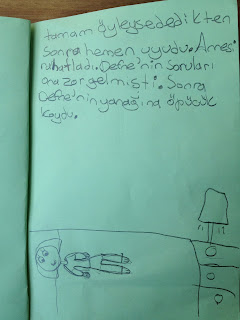 tamam öyleysededikten
sonra hemen uyudu. Annesi
rahatladı. Defne'nin soruları
ona zor gelmişti. Sonra
Defne'nin yanağına öpücük
koydu.